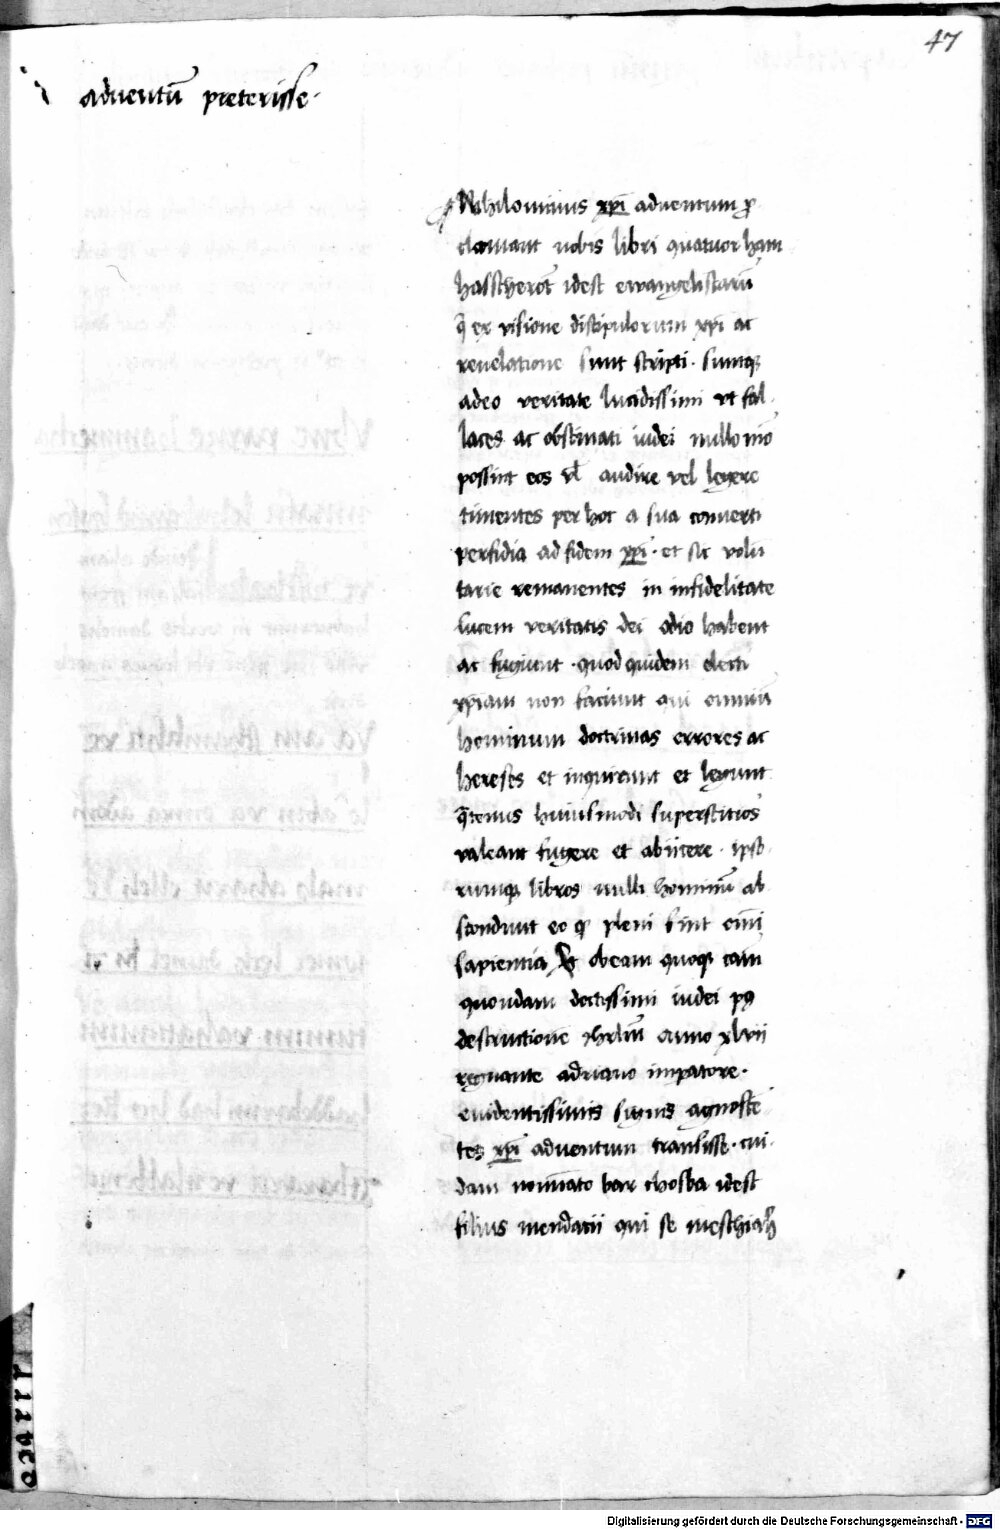 47
adventū preterisse.
Nihilominus xp̄i adventum p̱
clamant nobis libri quatuor ham
hasscherot̄ idest ewangelistarū
q̄ ex visione discipulorum xp̄i ac
revelatione sunt scripti. suntqꝫ
adeo veritate lucidissimi vt fal
laces ac obstinati iudei nullo mō
possint eos vl̄ audire vel legere
timentes per hoc a sua converti
perfidia ad fidem xp̄i. et sic volū
tarie remanentes in infidelitate
lucem veritatis dei odio habent
ac fugiunt. quod quidem electi
xp̄iani non faciunt qui omniū
hominum doctrinas errores ac
hereses et inquirunt et legunt
q̄tenus huiusmodi superstitios
valeant fugere et abiicere. ipso
rumqꝫ libros nulli hominū ab
scondunt eo qꝫ pleni sint om̄i
sapientia Et obeam quoqꝫ cām
quondam doctissimi iudei pꝰ
destructionē ihrlm̄ anno xlvii
regnante adriano impatore.
evidentissimis signis agnoscē
tes xp̄i adventum transisse. cui
dam nomīato bar chosba idest
filius mendacii qui se meschiah̄
Digitalisierung gefördert durch die Deutsche Forschungsgemeinschaft - DFG